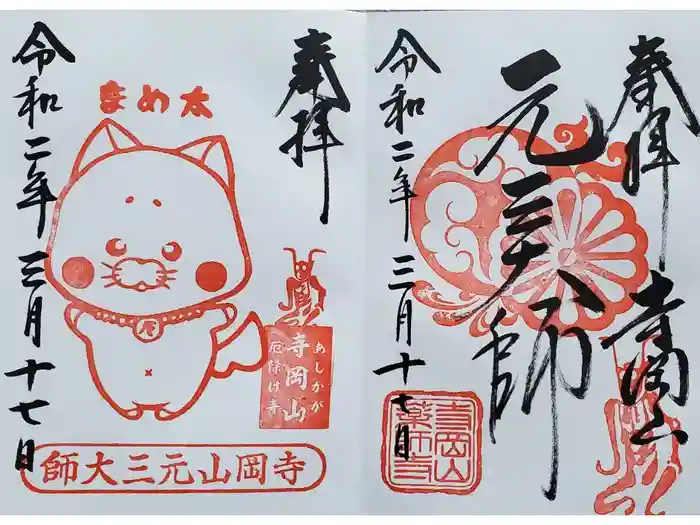 奉拝
まめ太
令和二年三月十七日
あしかが
寺岡山
厄除け寺
師大三元山岡寺
奉拝
寺岡山
元三大師
令和二年三月十七日
寺岡山
薬師寺